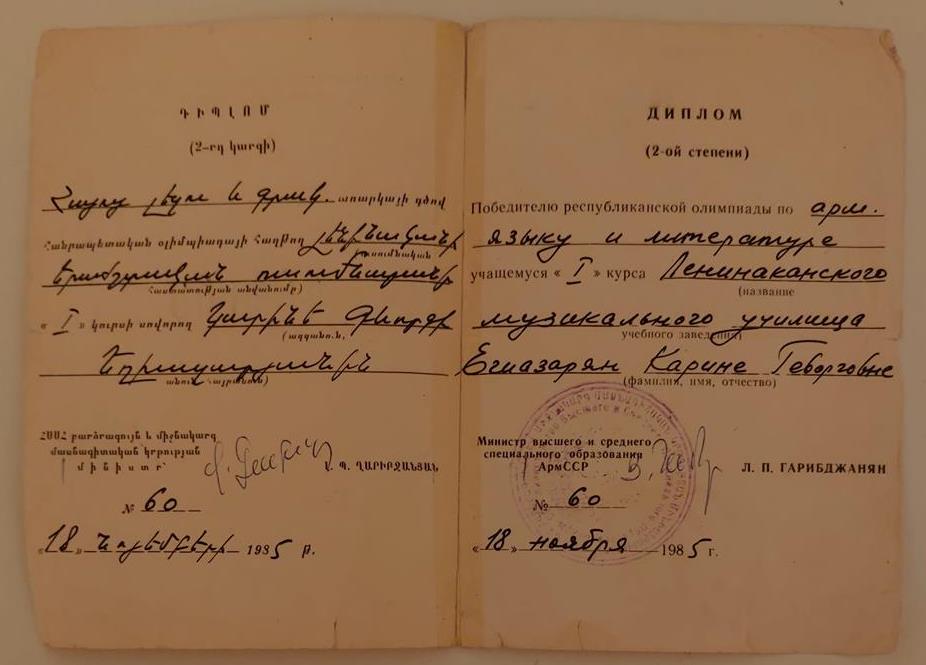 ԴԻՊԼՈՄ
(2-րդ կարգի)
Հայոց լեզու և գրակ. առարկայի գծով
Հանրապետական օլիմպիադայի Հաղթող Լենինականի
ուսումնական
երաժշտական ուսումնարանի
Հաստատության անվանումը)
« I » կուրսի սովորող Կարինե Գևորգի
(ազգանուն,
Եղիազարյանին
անուն, հայրանուն)
ՀՍՍՀ բարձրագույն և միջնակարգ
մասնագիտական կրթության
մինիստր՝
Լ. Պ. ՂԱՐԻԲՋԱՆՅԱՆ
№ 60
«18» նոյեմբերի 1985 թ.
ДИПЛОМ
(2-ой степени)
Победителю республиканской олимпиады по арм.
языку и литературе
учащемуся « I » курса Ленинаканского
(название
музикального училища
учебного заведения)
Егиазарян Карине Геворговне
(фамилия, имя, отчество)
Министр высшего и среднего
специального образования
АрмССР
Л. П. ГАРИБДЖАНЯН
№ 60
«18» ноября 1985 г.